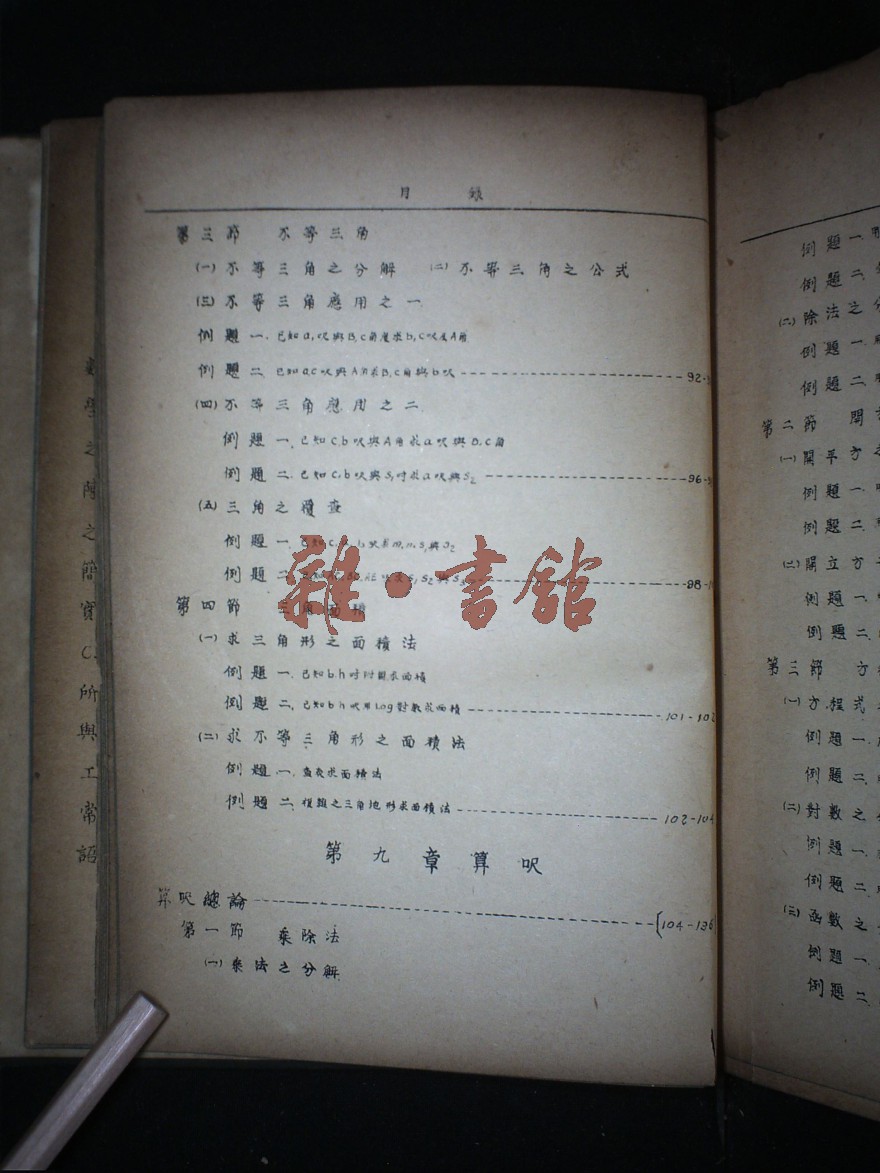 目 錄
第三節 不等三角
(一)不等三角之分解 (二)不等三角之公式
(三)不等三角應用之一
例題一. 已知a,呎與B,C角度求b,C呎及A角
例題二. 已知a,c呎與A角求B,C角與b呎 92-
(四)不等三角應用之二
例題一. 已知C,b呎與A角求a呎與B,C角
例題二. 已知C,b呎與S,吋求a呎與S2 96-
(五)三角之覆查
例題一.
例題二.
98-
第四節 三角面積
(一)求三角形之面積法
例題一. 已知b,h吋附圖求面積
例題二. 已知b h呎用Log對數求面積 101-102
(二)求不等三角形之面積法
例題一. 求面積法
例題二. 複雜之三角地形求面積法 102-104
第九章算呎
算呎總論 (104-126
第一節 乘除法
(一)乘法之分解
雜·書館
數學之 之簡實C.所與工常語
例題一.
例題二.
(二)除法之分
例題一.
例題二.
第二節 開
(一)開平方
例題一.
例題二.
(二)開立方
例題一.
例題二.
第三節 方
(一)方程式
例題一.
例題二.
(二)對數之
例題一.
例題二.
(三)函數之
例題一.
例題二.